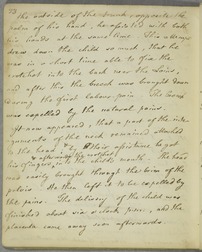 the outside of the
palm of his hand, he assisted with both
his hands at the same time. This always
drew down the child so much, that he
was in a short time able to fix the
crotchet into the back near the Loins,
and after this the breech was brought down
during the first labour pain. The head
was expelled by the natural pains.
It now appeared, that a part of the inte-
guments of the neck remained attached
to the head, & by this assistance he got
his fingers, into the child's mouth. The head
was easily brought through the brim of the
pelvis. He then left it to be expelled by
the pains. The delivery of the child was
finished about six o'clock, and the
placenta came away soon afterwards.